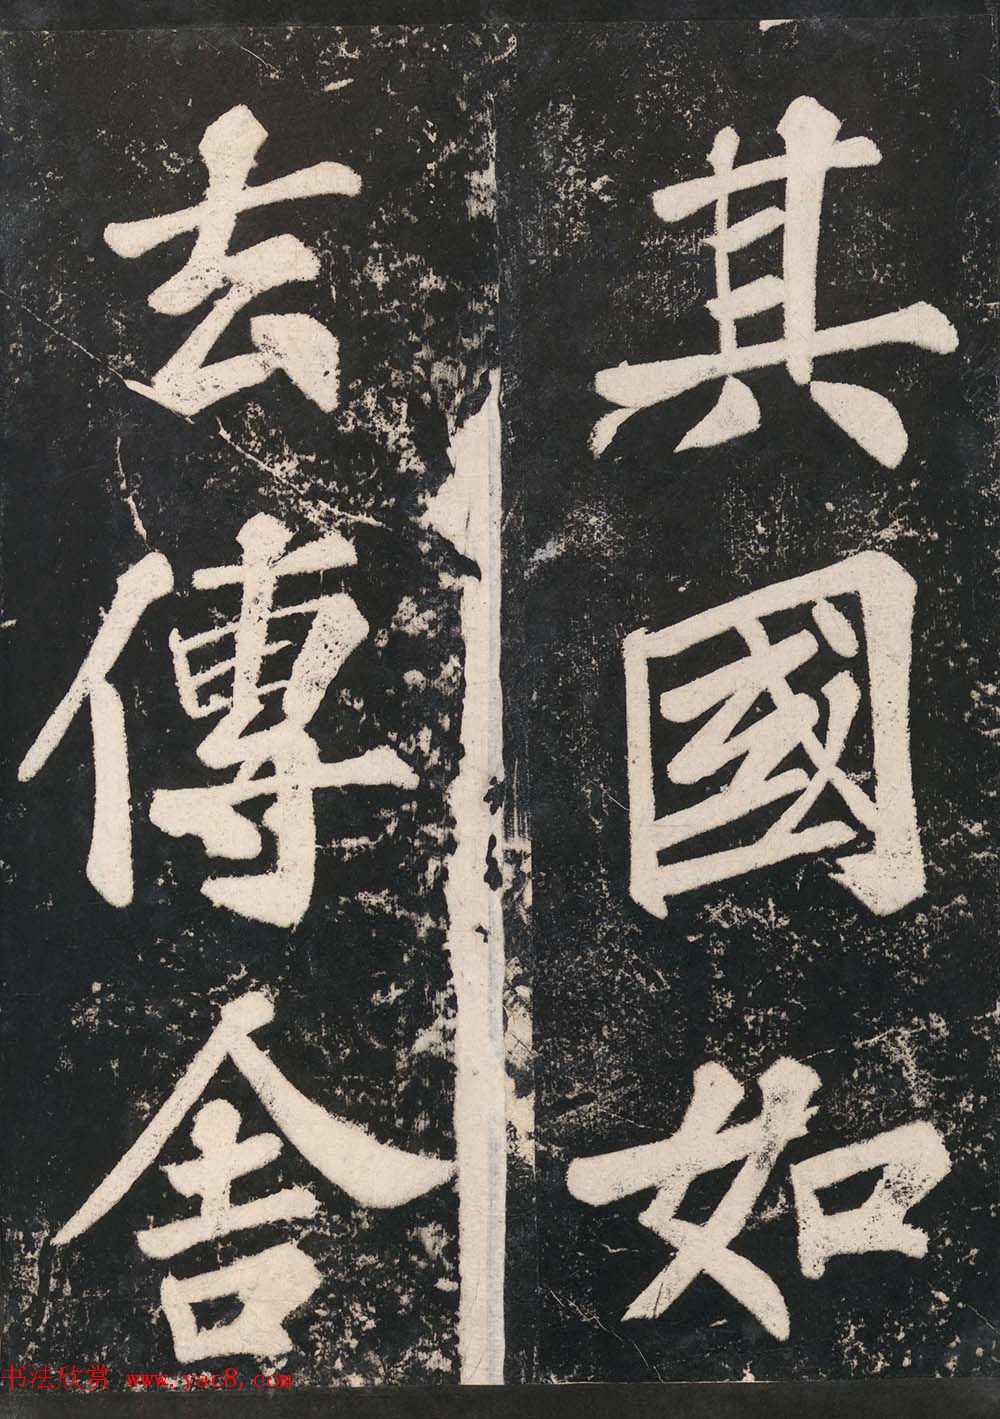 其國如
去傳舍
书法欣赏 www.yac8.com